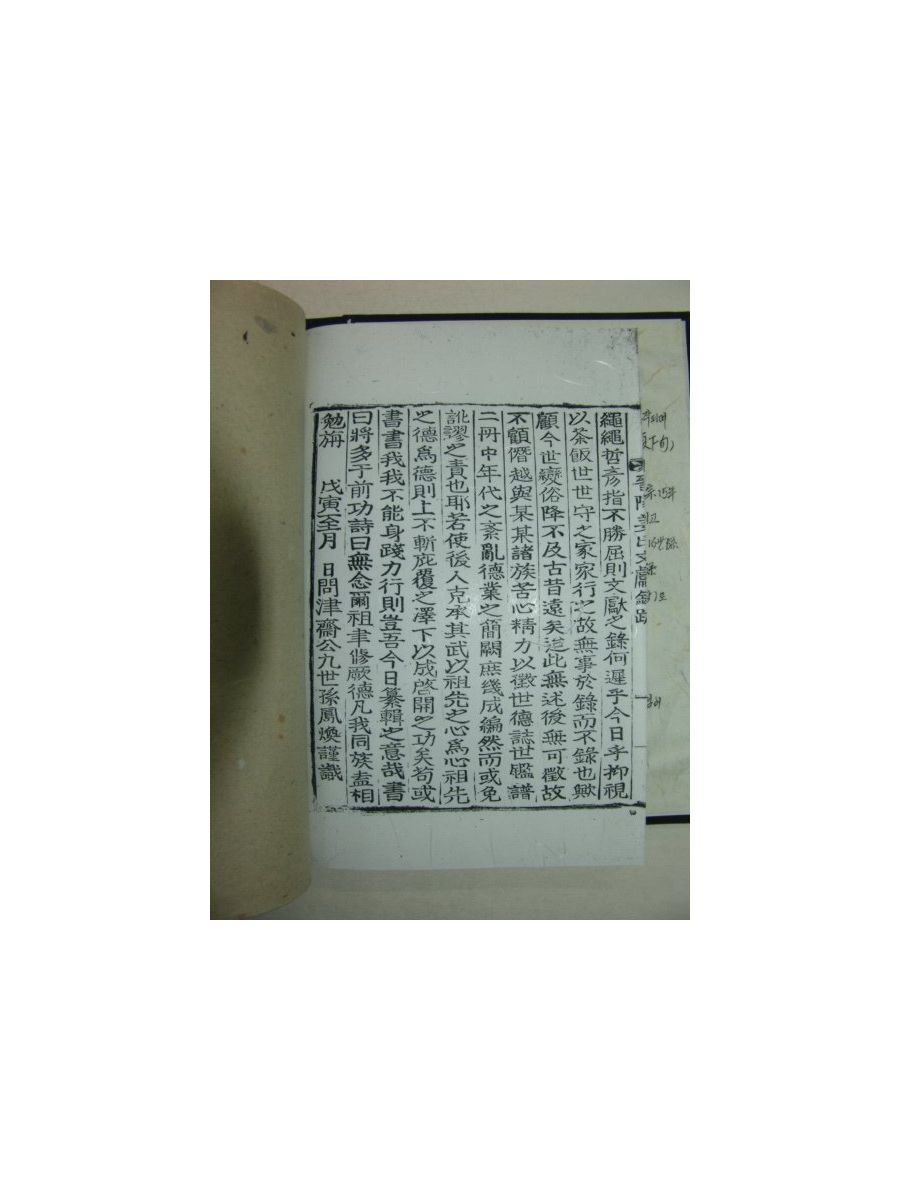 繩繩哲彥指不勝屈則文獻之錄何遲乎今日乎抑視
以茶飯世世守之家家行之故無事於錄而不錄也歟
顧今世變俗降不及古昔遠矣迨此無述後無可徵故
不顧僭越與某某諸族苦心精力以徵世德誌世鑑譜
二冊中年代之紊亂德業之簡闕庶幾成編然而或免
訛謬之責也耶若使後人克承其武以祖先之心爲心祖先
之德爲德則上不斬庇覆之澤下以成啓開之功矣苟或
書書我我不能身踐力行則豈吾今日纂輯之意哉書
曰將多于前功詩曰無念爾祖聿修厥德凡我同族盍相
勉旃 戊寅至月 日問津齋公九世孫鳳煥謹識